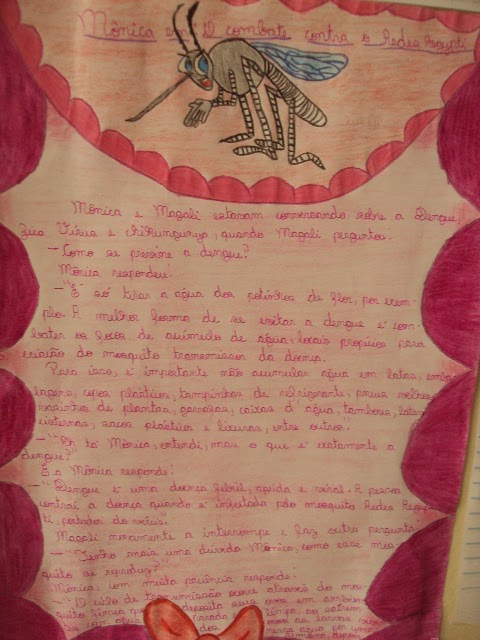 Mônica em O combate contra o Aedes Aegypti
Mônica e Magali estavam conversando sobre a Dengue,
Zica Vírus e chikungunya, quando Magali perguntou.
– Como se previne a dengue?
Mônica respondeu:
– "É só tirar a água dos potinhos de flor, por exem-
plo. A melhor forma de se evitar a dengue é com-
bater os focos de acúmulo de água, locais propícios para
a criação do mosquito transmissor da doença.
Para isso, é importante não acumular água em latas, emba-
lagens, copos plásticos, tampinhas de refrigerante, pneus velhos,
vasinhos de plantas, garrafas, caixas d'água, tambores, latões,
cisternas, sacos plásticos e lixeiras, entre outros."
– "Ah tá Mônica, entendi, mas o que é exatamente a
dengue?"
E a Mônica responde:
– "Dengue é uma doença febril, aguda e viral. A pessoa
contrai a doença quando é infectada pelo mosquito Aedes Aegyp-
ti, portador do vírus.
Magali novamente a interrompe e faz outra pergunta
– "Tenho mais uma dúvida Mônica, como esse mos-
quito se reproduz?"
Mônica, com muita paciência responde.
– "O ciclo de transmissão ocorre através do mos-
quito fêmea que deposita seus ovos em